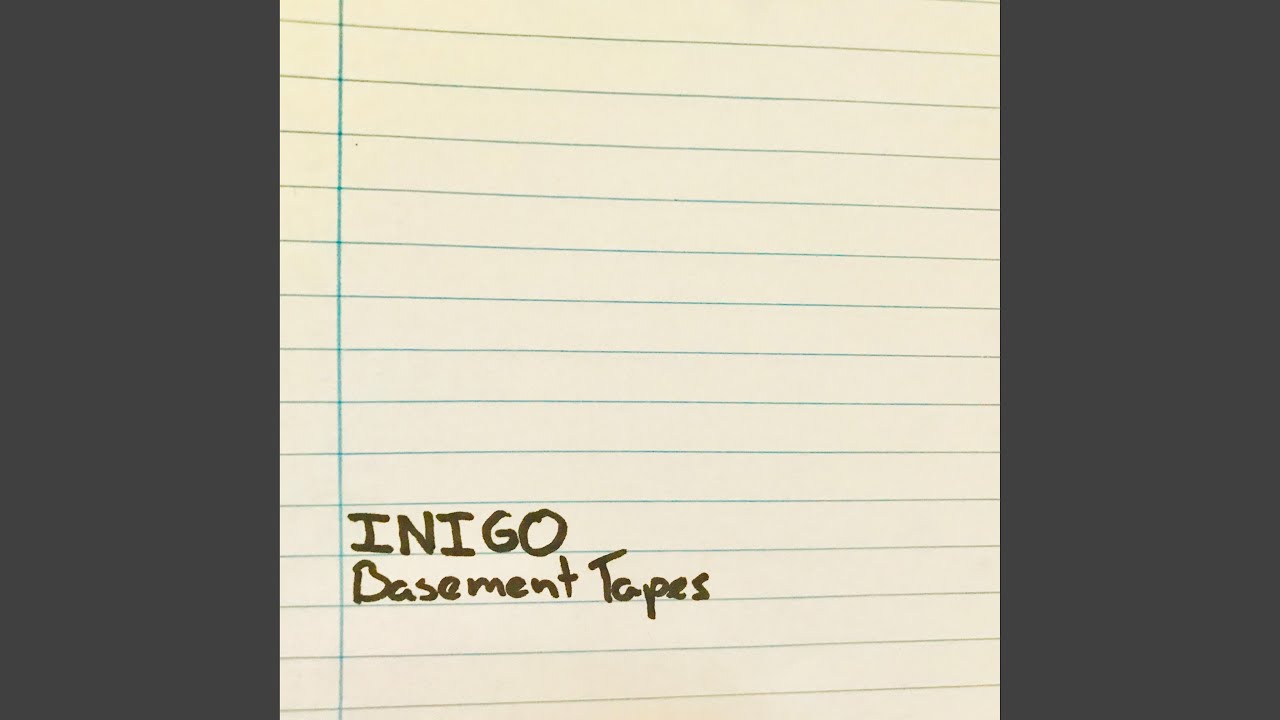 INIGO
Basement Tapes